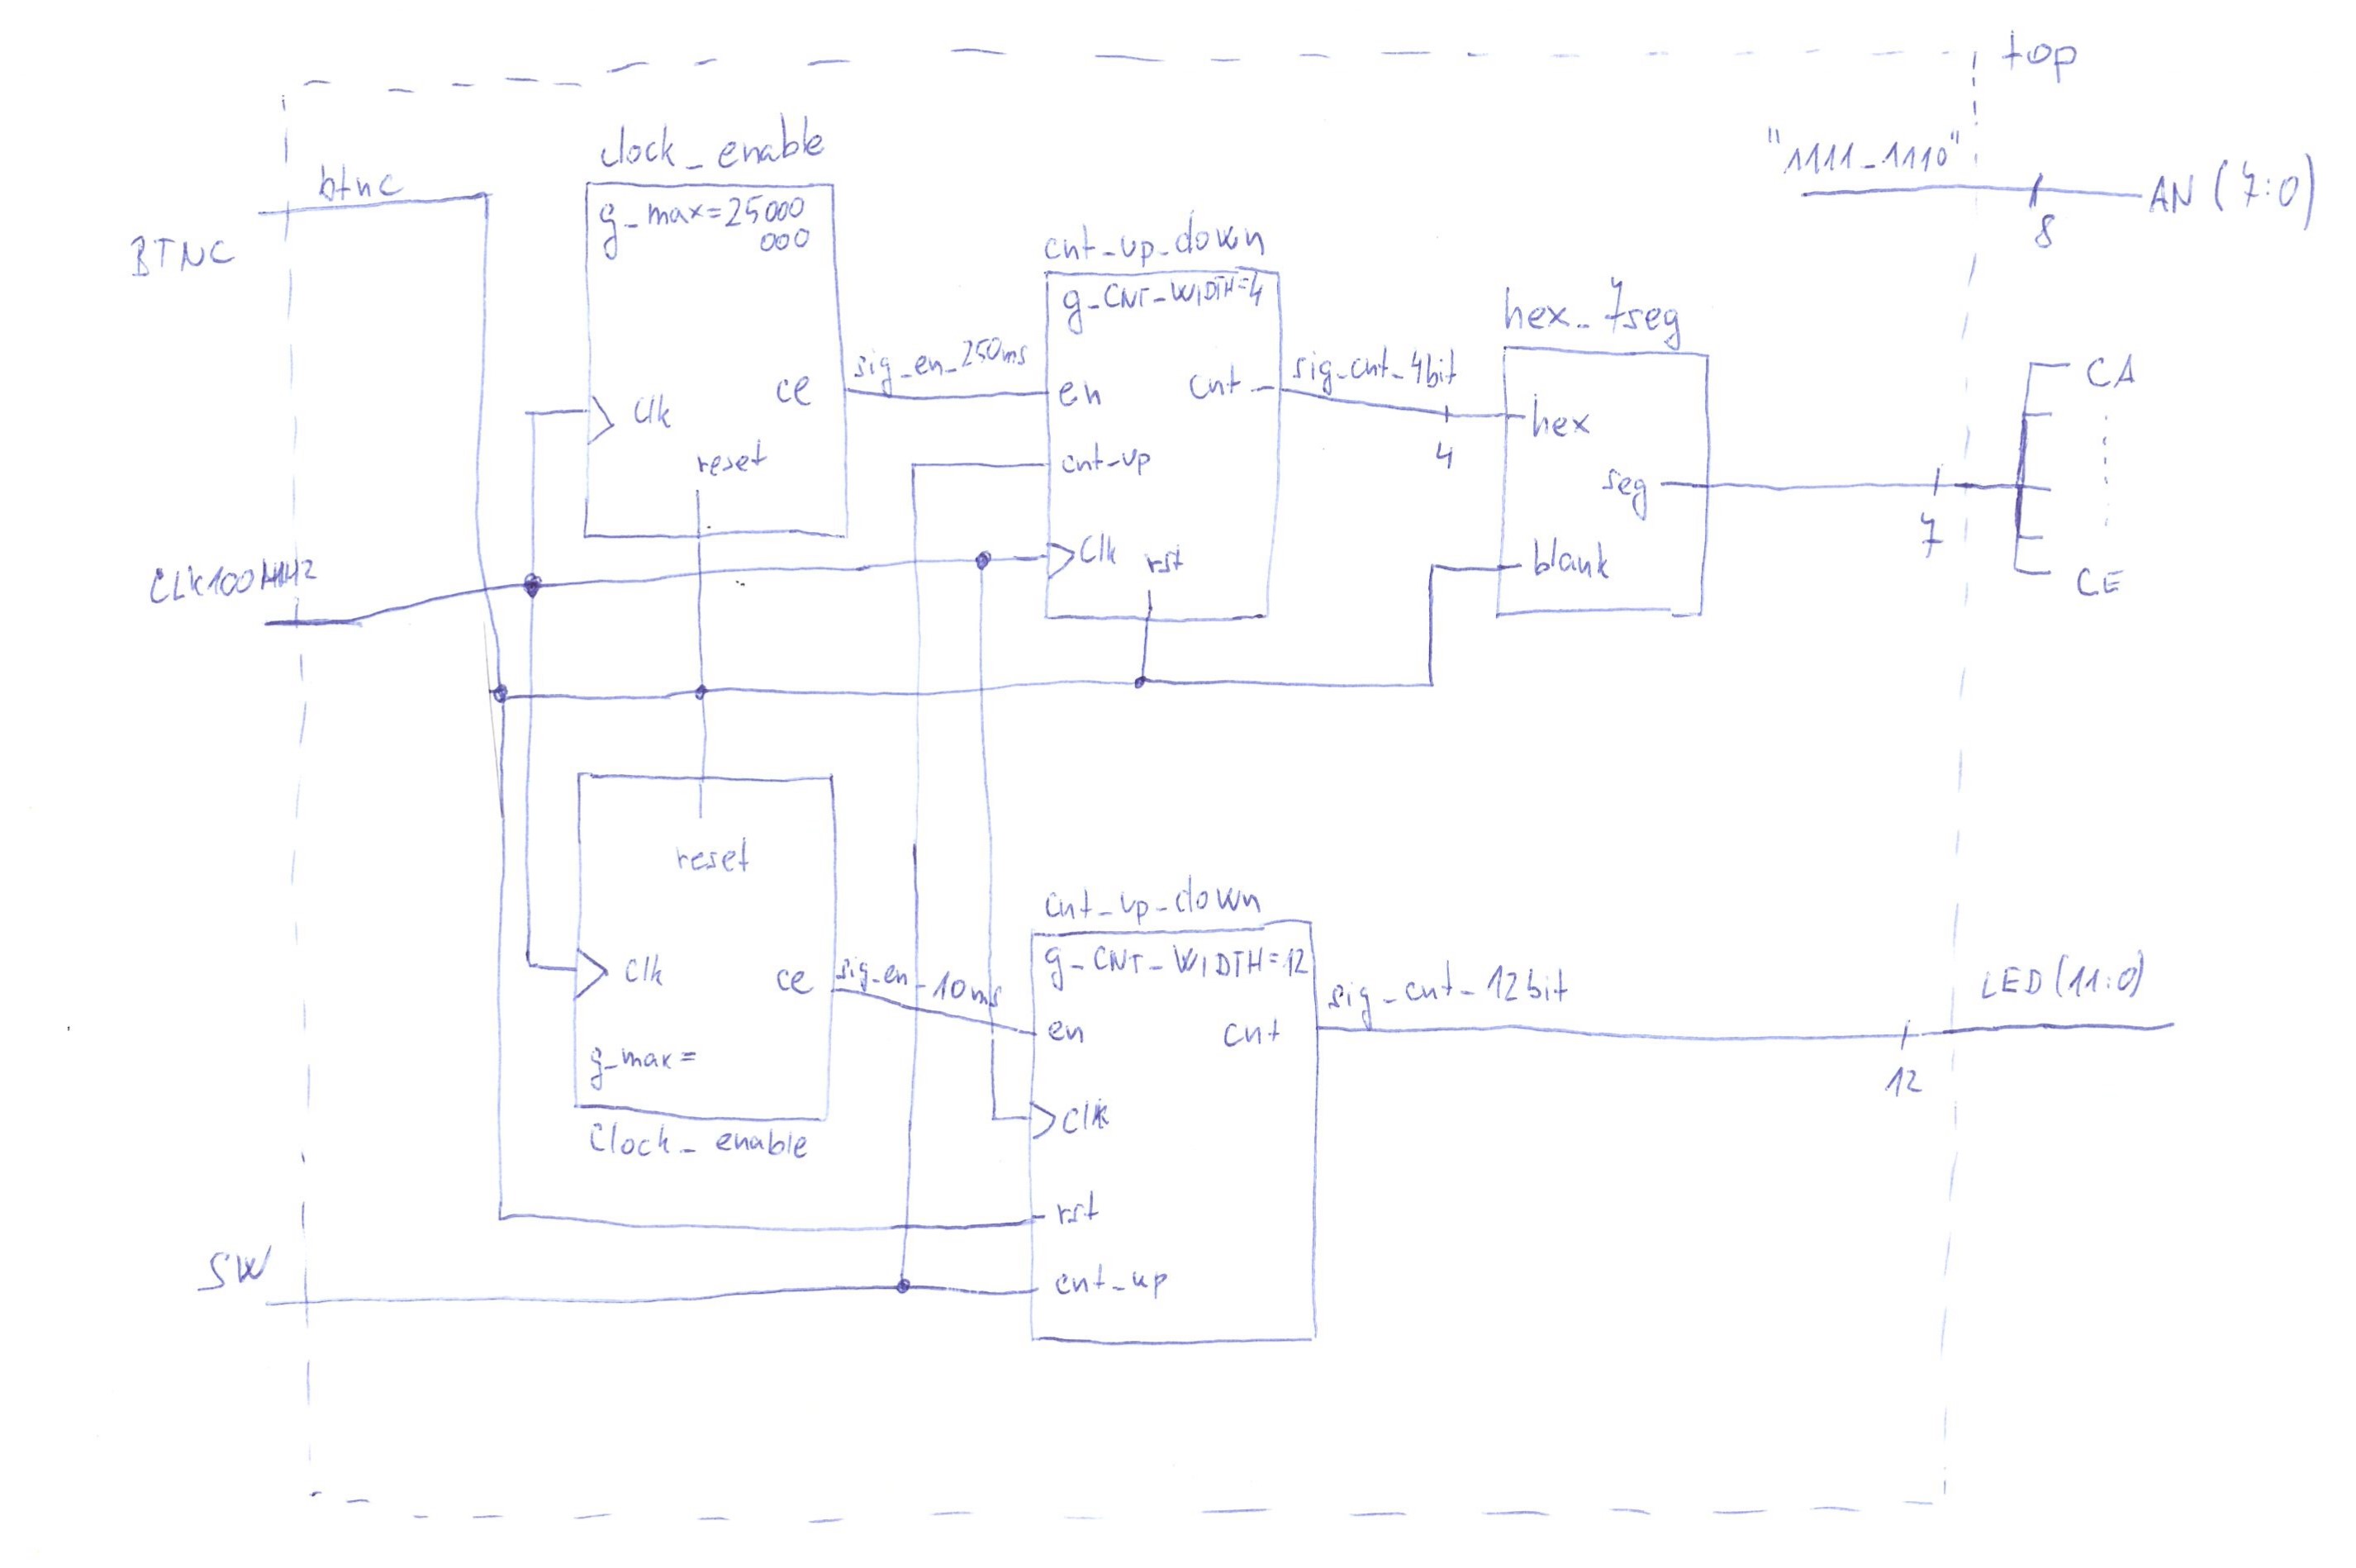 top
"1111_1110"
AN (7:0)
8
btnc
BTNC
clock_enable
g_max=25000
000
Clk
ce
reset
sig_en_250ms
cnt_up_down
g_CNT_WIDTH=4
en
cnt
cnt_up
Clk
rst
sig_cnt_4bit
4
hex_7seg
hex
seg
blank
7
CA
CE
CLK100MHZ
reset
Clk
ce
g_max=
Clock_enable
sig_en_10ms
cnt_up_down
g_CNT_WIDTH=12
en
cnt
Clk
rst
cnt_up
sig_cnt_12bit
12
LED (11:0)
SW